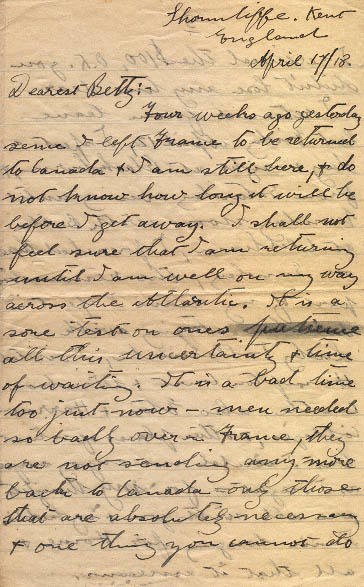 Shorncliffe. Kent
England
April 17/18.
Dearest Betty:-
Four weeks ago yesterday
since I left France to be returned
to Canada & I am still here, & do
not know how long it will be
before I get away. I shall not
feel sure that I am returning
until I am well on my way
across the Atlantic. It is a
sore test on ones patience
all this uncertainty & time
of waiting. It is a bad time
too just now - men needed
so badly over in France, they
are not sending any more
back to Canada only those
that are absolutely necessary
& one thing you cannot do